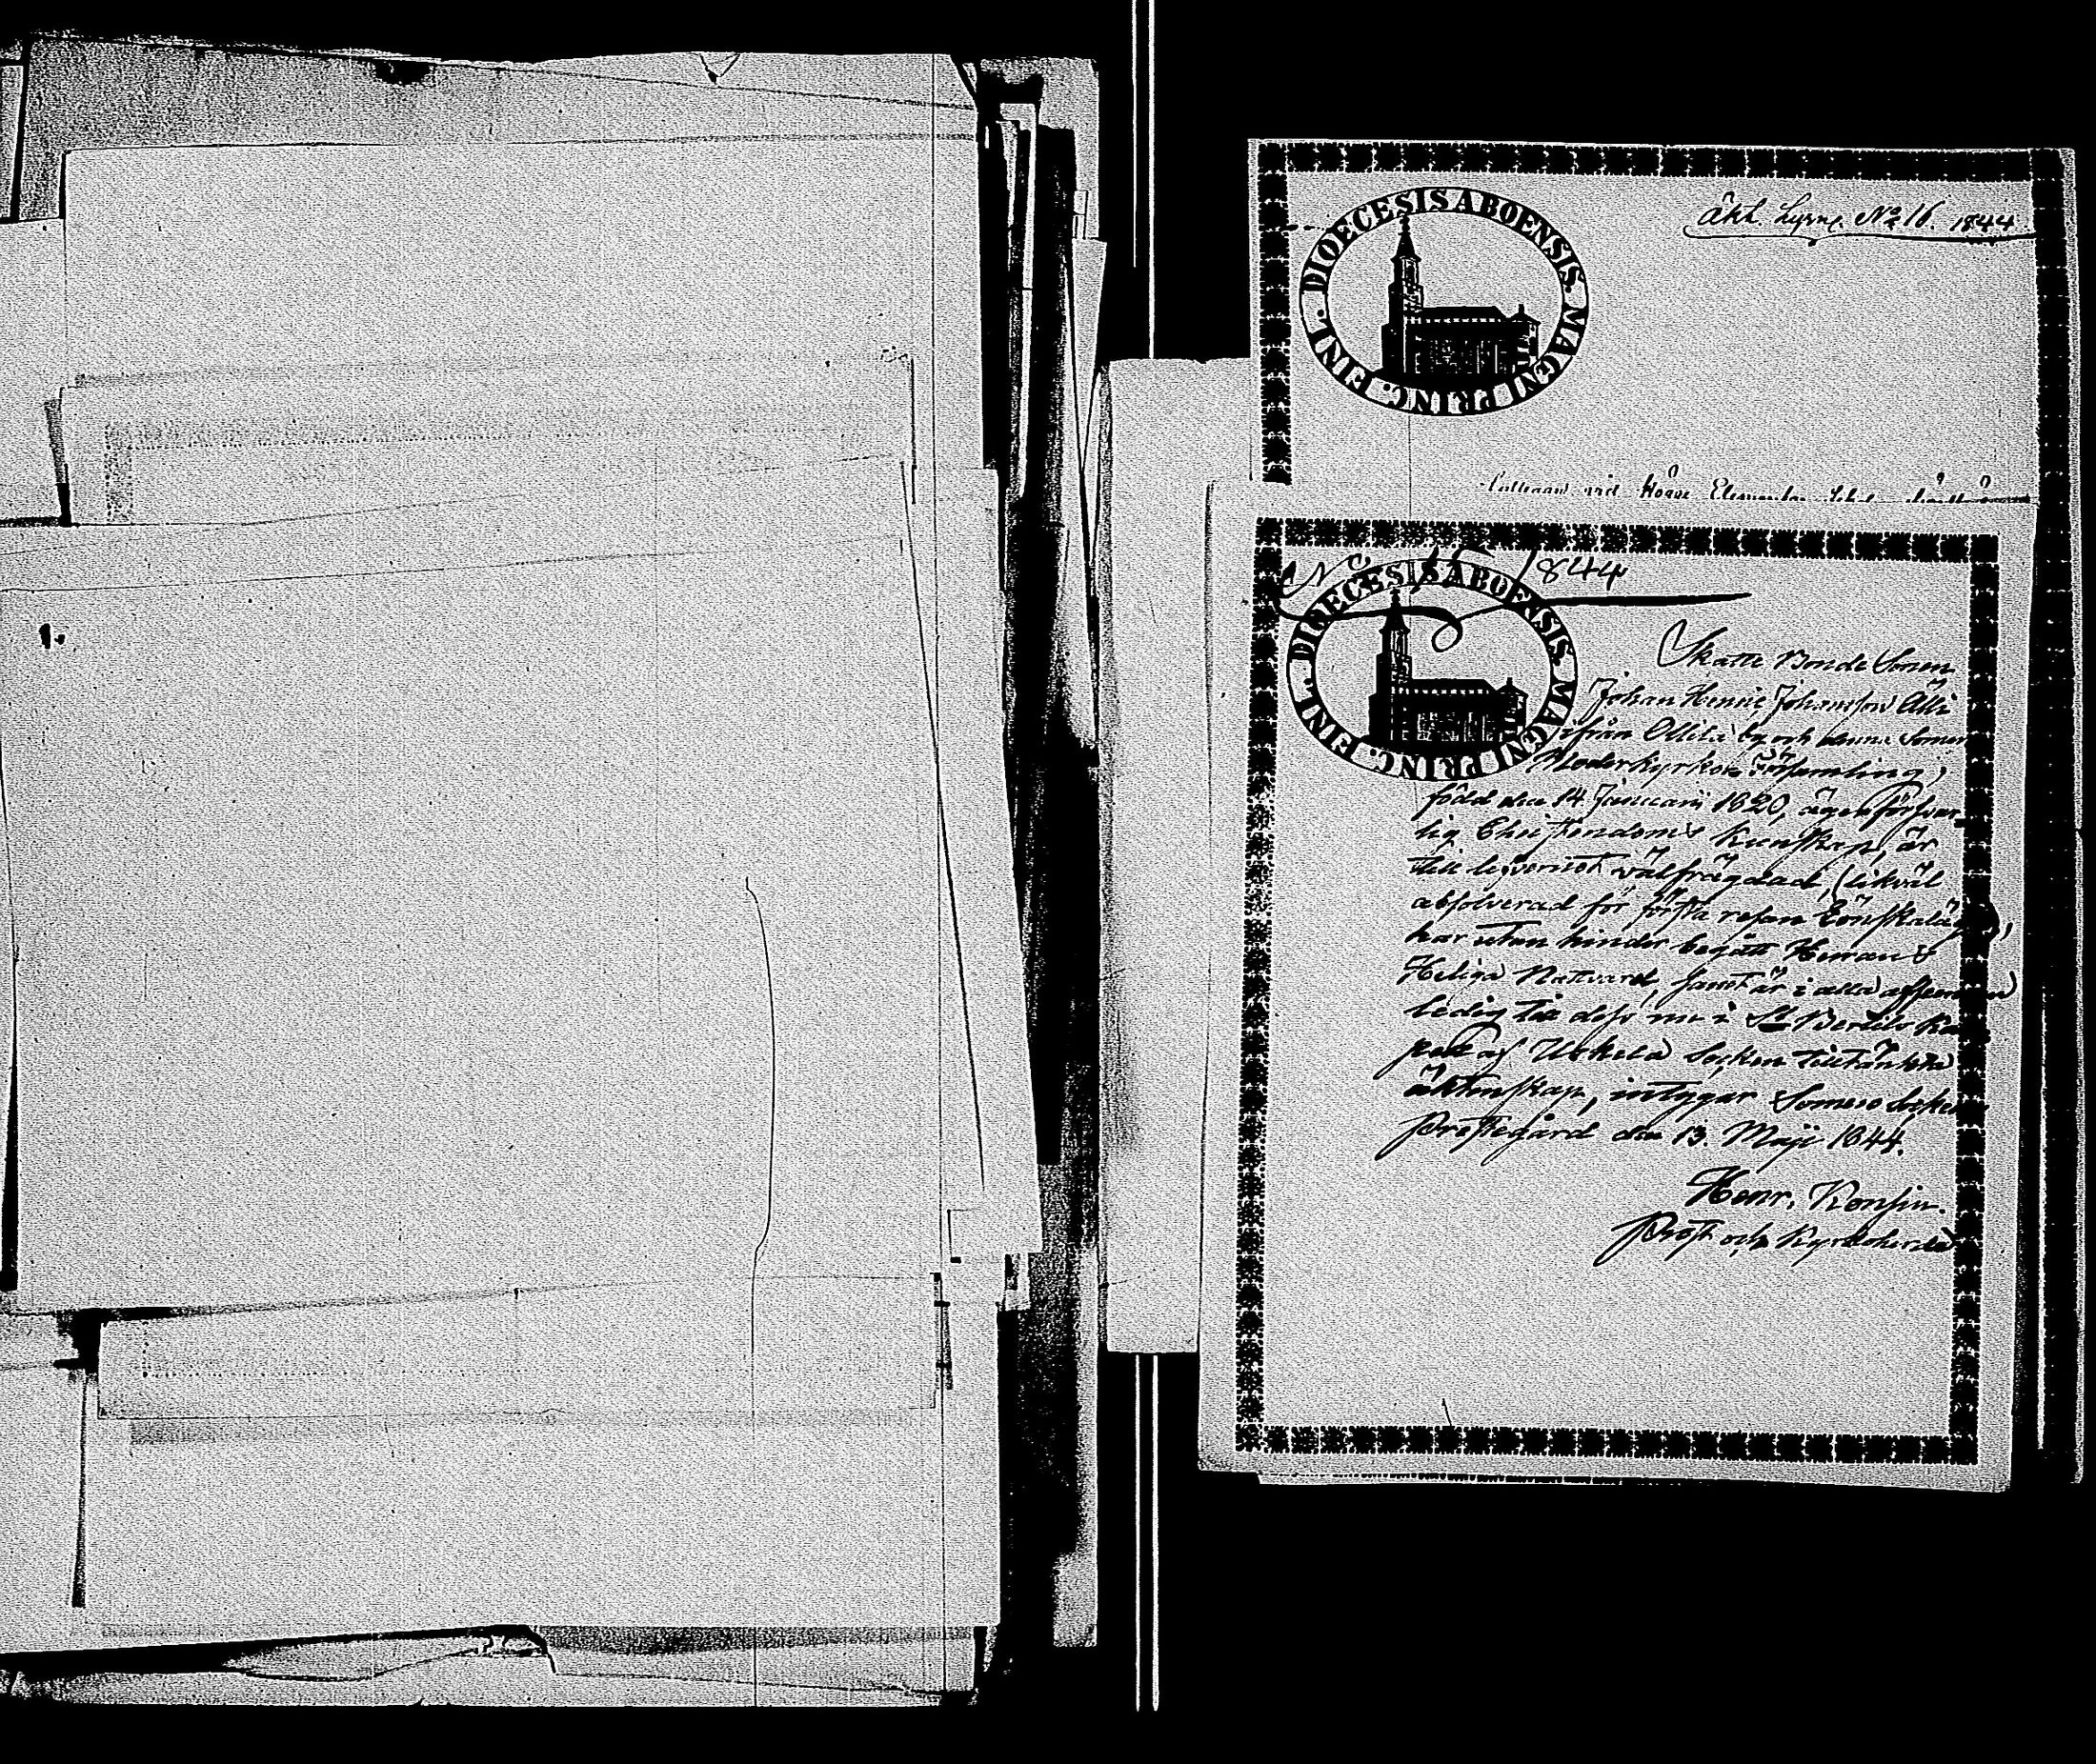 DIOECESIS ABOENSIS. MAGNI PRINC. FINL.
Åkl. Lysn. No 16. 1844
med
No 15 1844
DIOECESIS ABOENSIS. MAGNI PRINC. FINL.
Skatte Bonde Sonen
Johan Henric Johansson Olli
ifrån Ollila by och denna Somero
Moderkyrko Församling,
född den 14 Januarii 1820, äger försvar-
lig Christendoms kunskap, är
till lefvernet välfrägdad, (likväl
absolverad för första resan Lönskaläge),
har utan hinder begått Herrans
Heliga Nattvard, samt är i alla afseenden
ledig till dess nu i St Bertils Ka-
pell af Uskela Socken tilltänkta
äktenskap, intygar Somero Socken
Prestegård den 13. Maji 1844.
Henr. Konsin.
Prost och Kyrkoherde